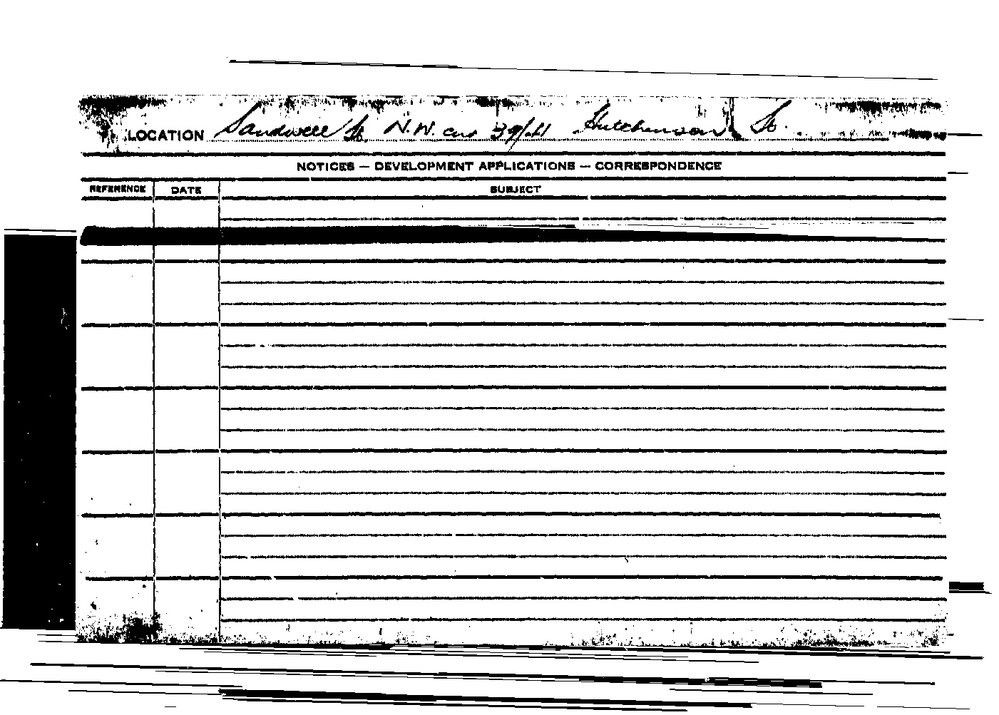 LOCATION Sandwell St. N.W. cnr 39/41 Hutchinson St.
NOTICES — DEVELOPMENT APPLICATIONS — CORRESPONDENCE
REFERENCE DATE SUBJECT